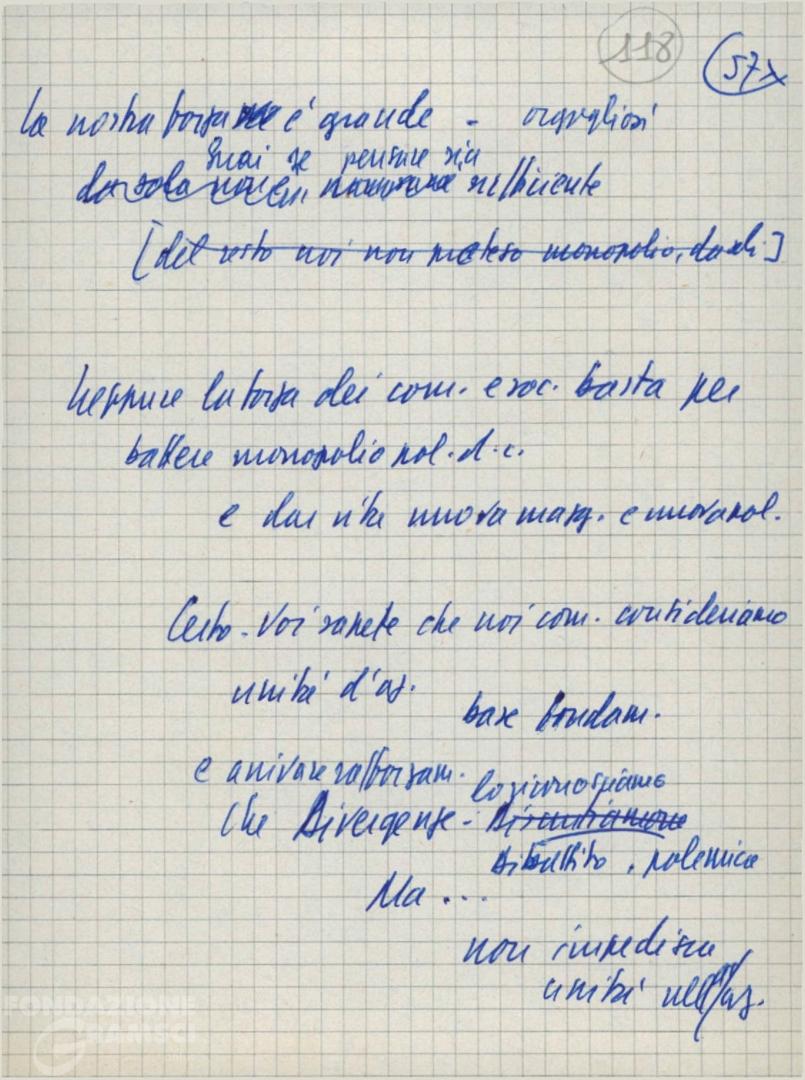 118
57x
La nostra forza è grande - orgogliosi
Guai se pensare sia
da sola non è sufficiente
[del resto noi non preteso monopolio, da soli]
Neppure la forza dei com. e soc. basta per
battere monopolio pol. d.c.
e dar vita nuova magg. e nuova pol.
Certo - Voi sapete che noi com. consideriamo
unità d'az.
base fondam.
e arrivare rafforzam.
lo riconosciamo
Che Divergenze - Discutiamone
Dibattito, polemica
Ma ...
non impedisca
unità nell'az.
FONDAZIONE
GRAMSCI